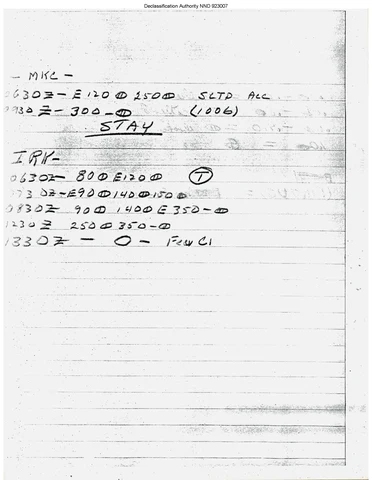 Declassification Authority NND 923007
- MKC -
0630Z - E120⦶250⦶ SLTD ACC
0930Z - 300-⦶ (1006)
STAY
IRK-
0630Z- 80⦶E120⦶ Ⓣ
0730Z-E90⦶140⦶150⦶
0830Z 90⦶ 140⦶E350-⦶
1230Z 250⦶350-⦶
1330Z - O - Few Ci